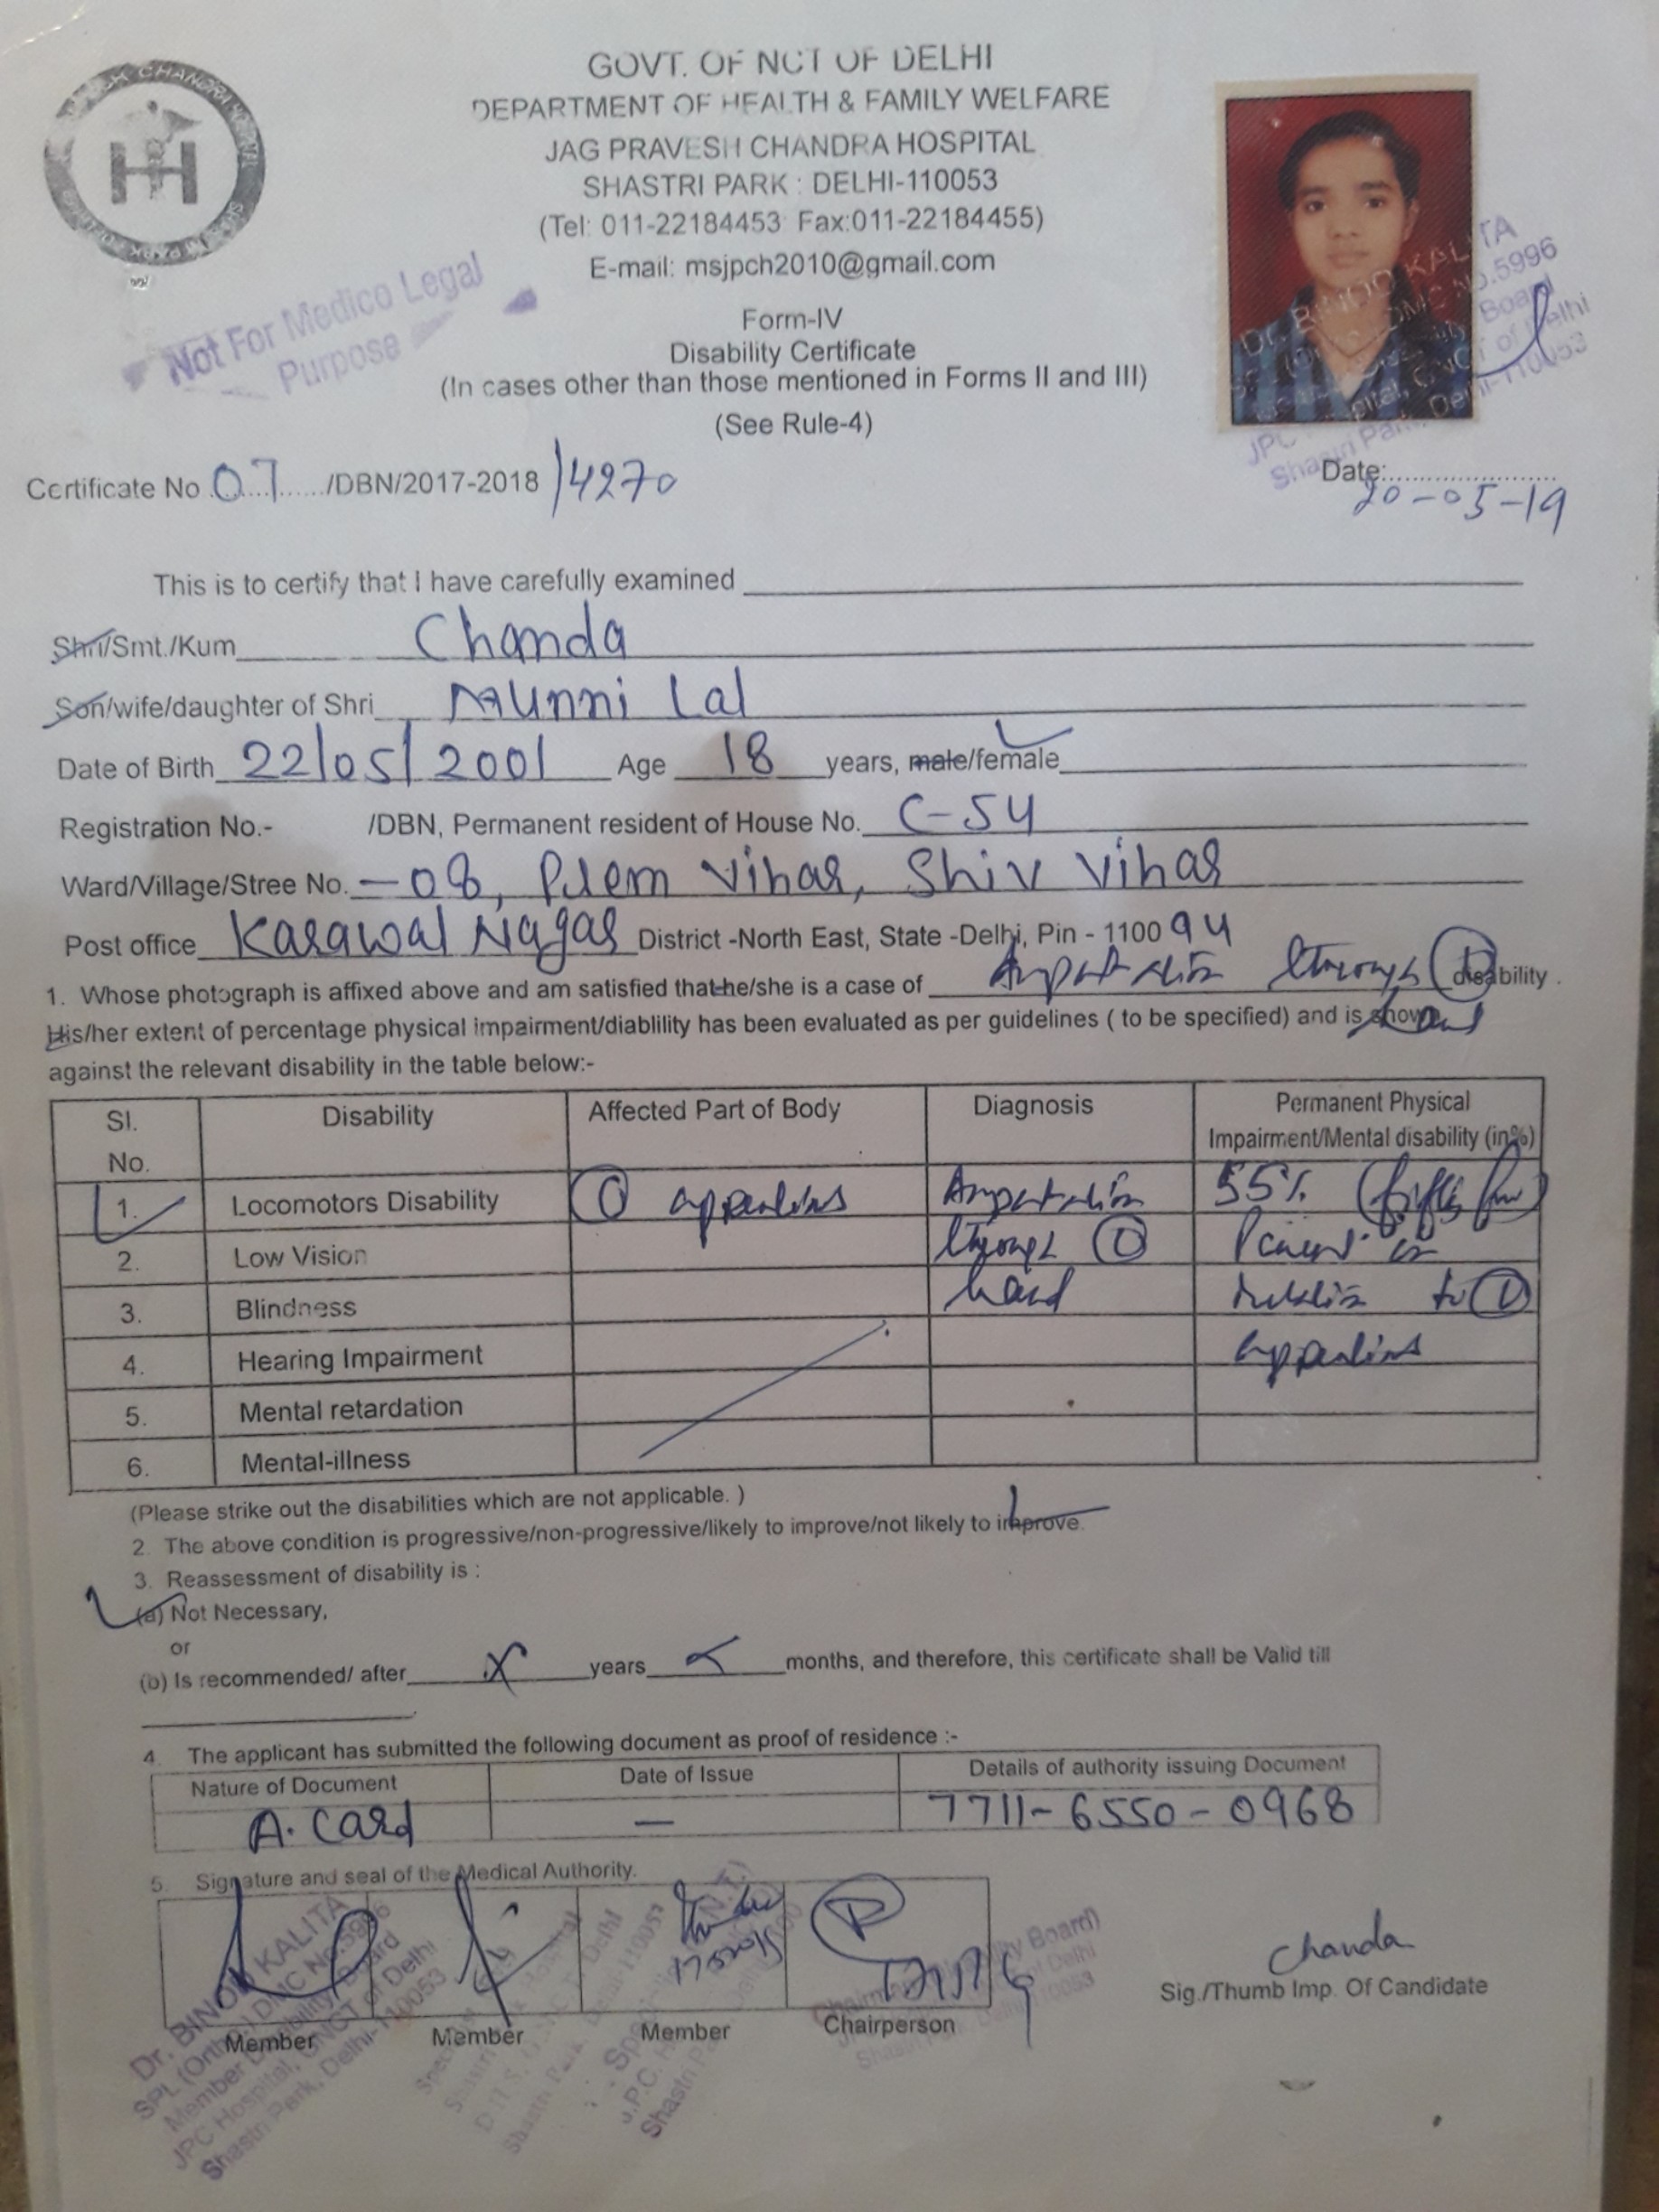 GOVT. OF NCT OF DELHI
DEPARTMENT OF HEALTH & FAMILY WELFARE
JAG PRAVESH CHANDRA HOSPITAL
SHASTRI PARK : DELHI-110053
(Tel: 011-22184453 Fax:011-22184455)
E-mail: msjpch2010@gmail.com
Not For Medico Legal
Purpose
Form-IV
Disability Certificate
(In cases other than those mentioned in Forms II and III)
(See Rule-4)
Certificate No 07 /DBN/2017-2018 /4270
Date:
20-05-19
This is to certify that I have carefully examined
Shri/Smt./Kum Chanda
Son/wife/daughter of Shri Munni Lal
Date of Birth 22/05/2001 Age 18 years, male/female
Registration No.- /DBN, Permanent resident of House No. C-54
Ward/Village/Stree No. -08, Prem Vihar, Shiv Vihar
Post office Karawal Nagar District -North East, State -Delhi, Pin - 110094
1. Whose photograph is affixed above and am satisfied that he/she is a case of Amputation through disability .
His/her extent of percentage physical impairment/diablility has been evaluated as per guidelines ( to be specified) and is shown hand
against the relevant disability in the table below:-
Sl. No. Disability Affected Part of Body Diagnosis Permanent Physical Impairment/Mental disability (in%)
1. Locomotors Disability Amputation 55% (fifty five)
2. Low Vision through
3. Blindness hand to
4. Hearing Impairment
5. Mental retardation
6. Mental-illness
(Please strike out the disabilities which are not applicable. )
2. The above condition is progressive/non-progressive/likely to improve/not likely to improve.
3. Reassessment of disability is :
(a) Not Necessary,
or
(b) Is recommended/ after x years months, and therefore, this certificate shall be Valid till
4. The applicant has submitted the following document as proof of residence :-
Nature of Document Date of Issue Details of authority issuing Document
A. Card — 7711-6550-0968
5. Signature and seal of the Medical Authority.
Dr. BINOD KALITA
SPL (Ortho) DMC No.5996
Member Disability Board
JPC Hospital, GNCT of Delhi
Shastri Park, Delhi-110053
Member Member Member Chairperson
Chanda
Sig./Thumb Imp. Of Candidate